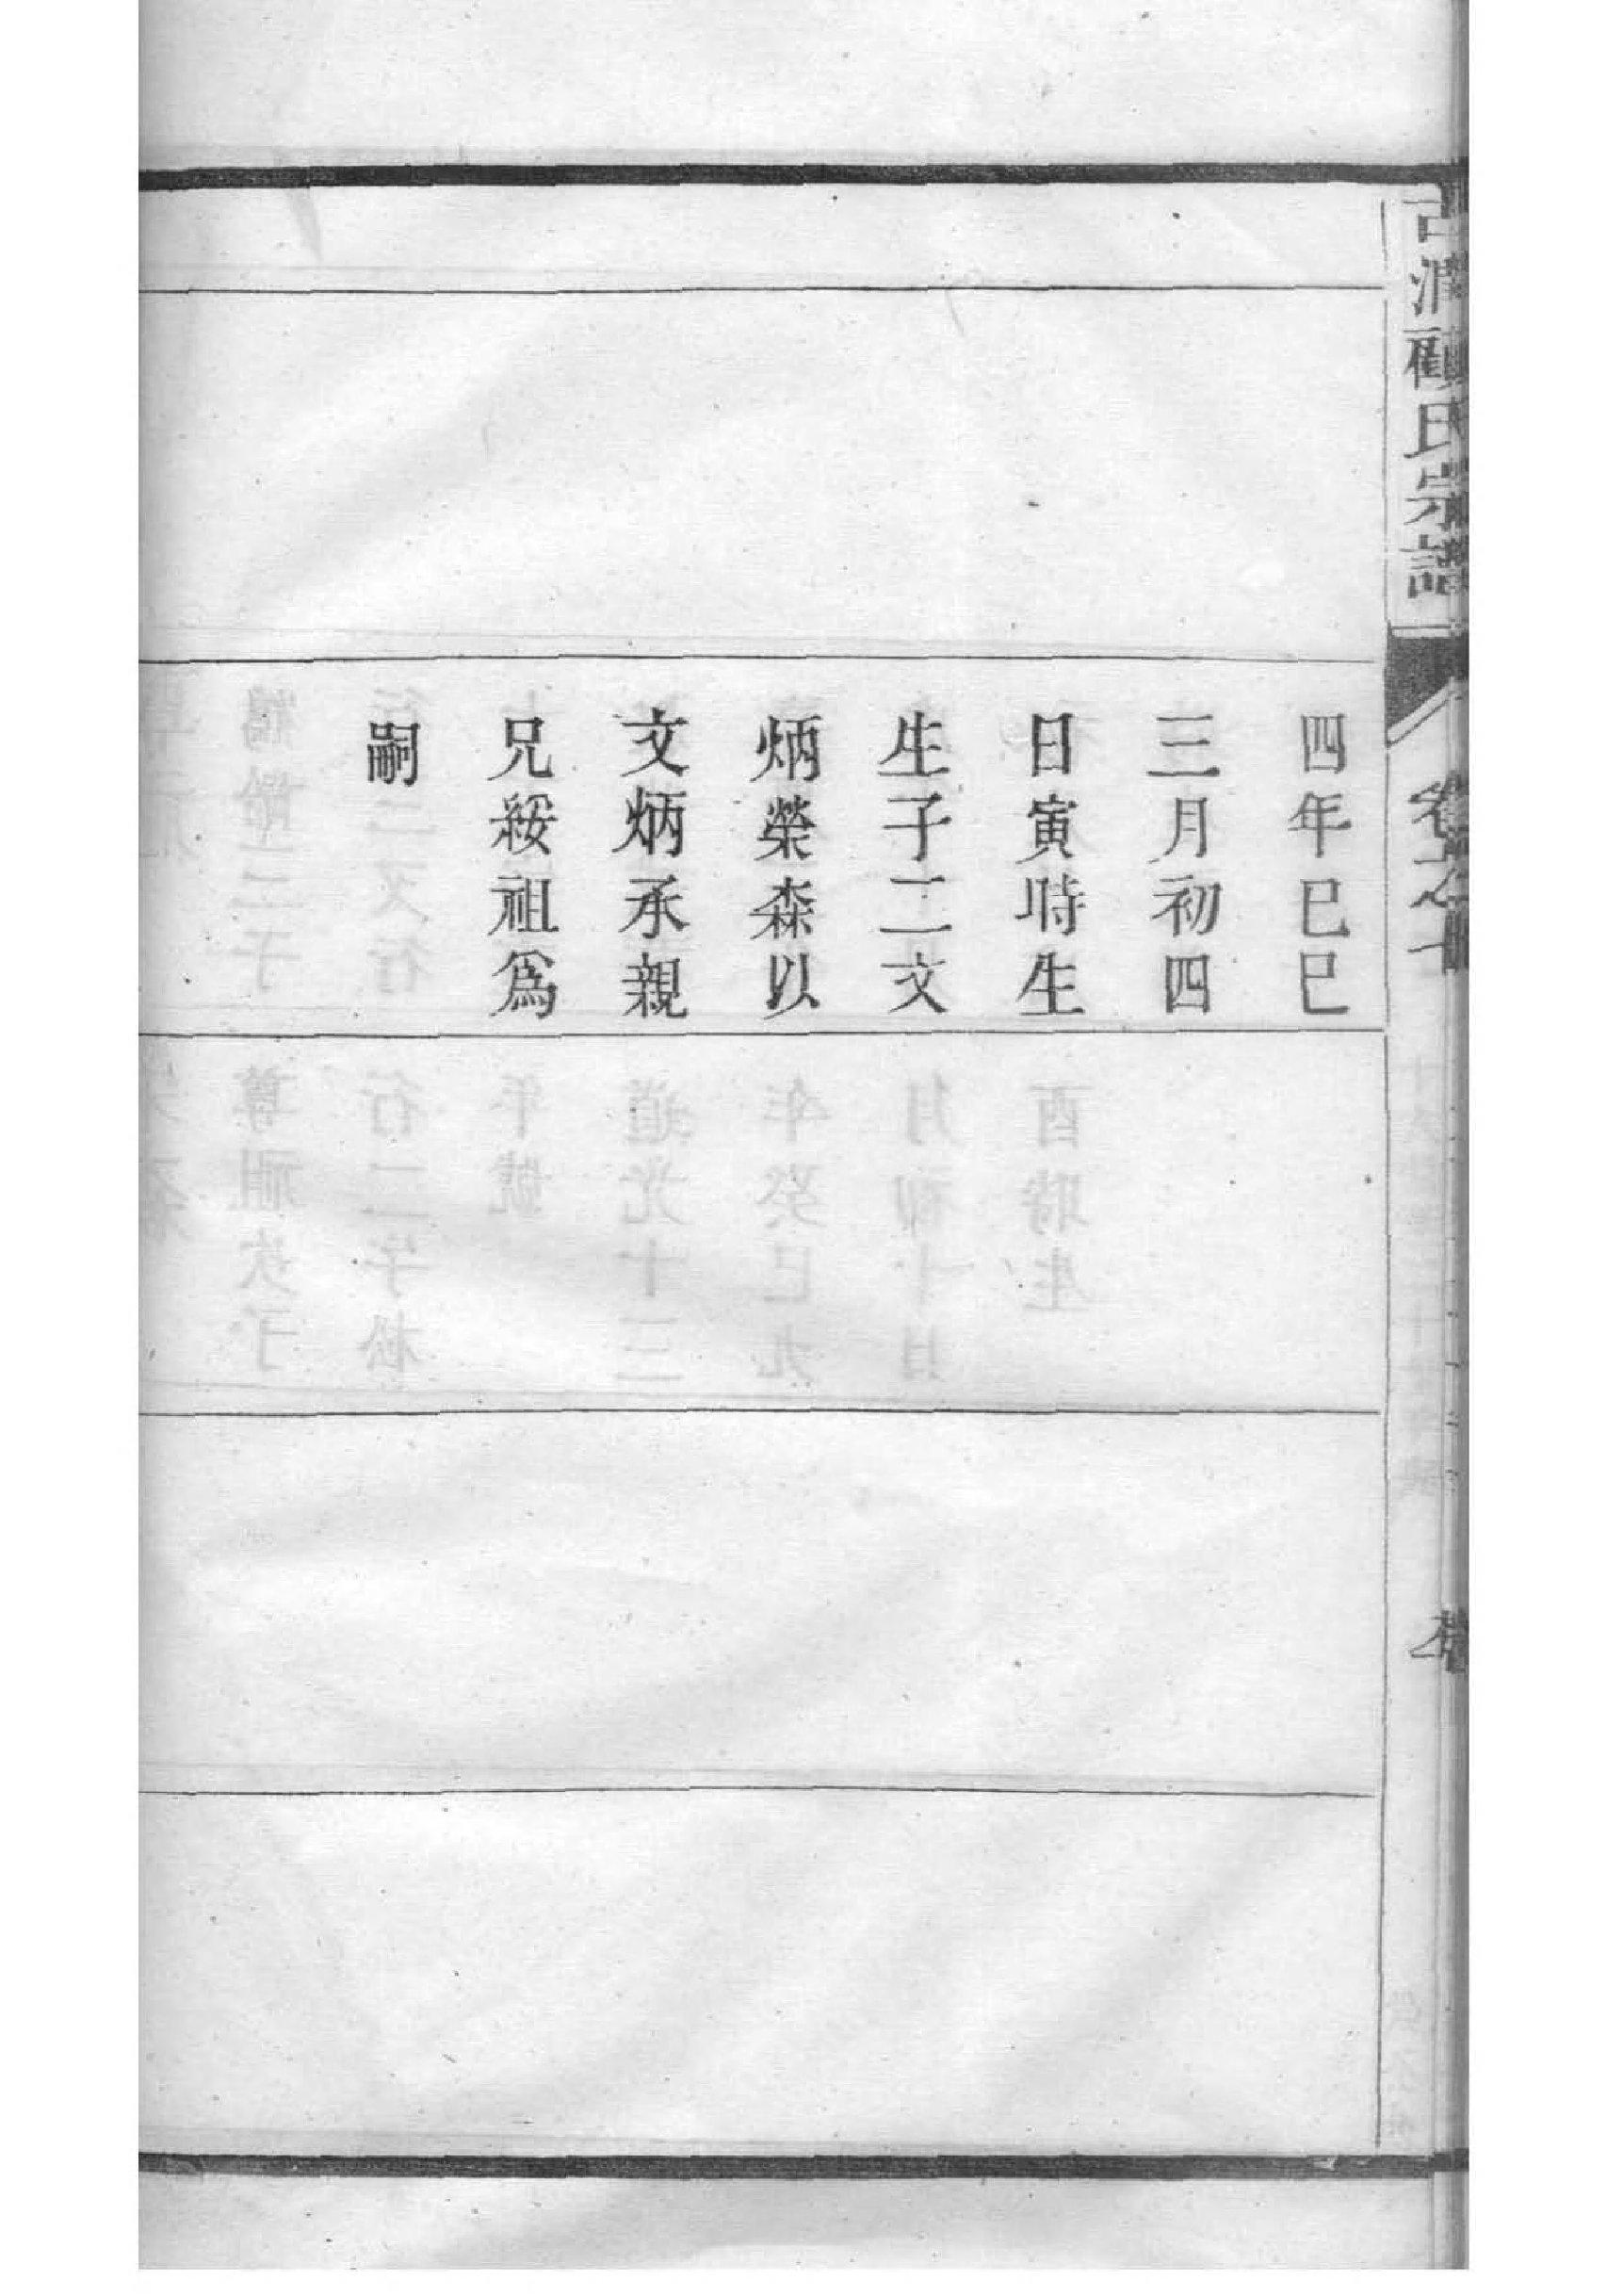 四年巳巳
三月初四
日寅時生
生子二文
炳榮森以
文炳承親
兄綏祖爲
嗣
顧氏宗譜